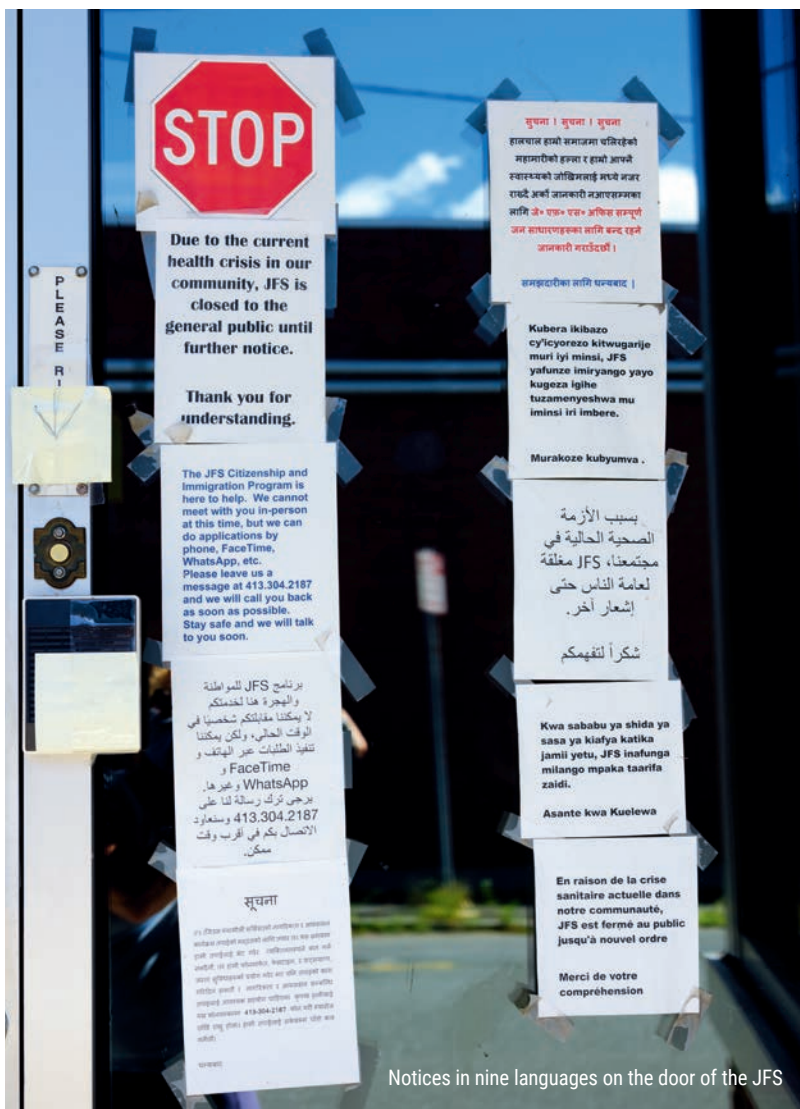 STOP
Due to the current
health crisis in our
community, JFS is
closed to the
general public until
further notice.
Thank you for
understanding.
PLEASE
The JFS Citizenship and
Immigration Program is
here to help. We cannot
meet with you in-person
at this time, but we can
do applications by
phone, FaceTime,
WhatsApp, etc.
Please leave us a
message at 413.304.2187
and we will call you back
as soon as possible.
Stay safe and we will talk
to you soon.
برنامج JFS للمواطنة
والهجرة هنا لخدمتكم
لا يمكننا مقابلتكم شخصيًا في
الوقت الحالي، ولكن يمكننا
تنفيذ الطلبات عبر الهاتف و
FaceTime و
WhatsApp وغيرها.
يرجى ترك رسالة لنا على
413.304.2187 وسنعاود
الاتصال بكم في أقرب وقت
ممكن.
सूचना
413-304-2187
धन्यबाद
सुचना ! सुचना ! सुचना
हालचाल हाम्रो समाजमा चलिरहेको
महामारीको हल्ला र हाम्रो आफ्नै
स्वास्थ्यको जोखिमलाई मध्ये नजर
राख्दै अर्को जानकारी नआएसम्मका
लागि जे॰ एफ॰ एस॰ अफिस सम्पूर्ण
जन साधारणहरुका लागि बन्द रहने
जानकारी गराउँदछौं ।
समझदारीका लागि धन्यबाद |
Kubera ikibazo
cy'icyorezo kitwugarije
muri iyi minsi, JFS
yafunze imiryango yayo
kugeza igihe
tuzamenyeshwa mu
iminsi iri imbere.
Murakoze kubyumva .
بسبب الأزمة
الصحية الحالية في
مجتمعنا، JFS مغلقة
لعامة الناس حتى
إشعار آخر.
شكراً لتفهمكم
Kwa sababu ya shida ya
sasa ya kiafya katika
jamii yetu, JFS inafunga
milango mpaka taarifa
zaidi.
Asante kwa Kuelewa
En raison de la crise
sanitaire actuelle dans
notre communauté,
JFS est fermé au public
jusqu'à nouvel ordre
Merci de votre
compréhension
Notices in nine languages on the door of the JFS